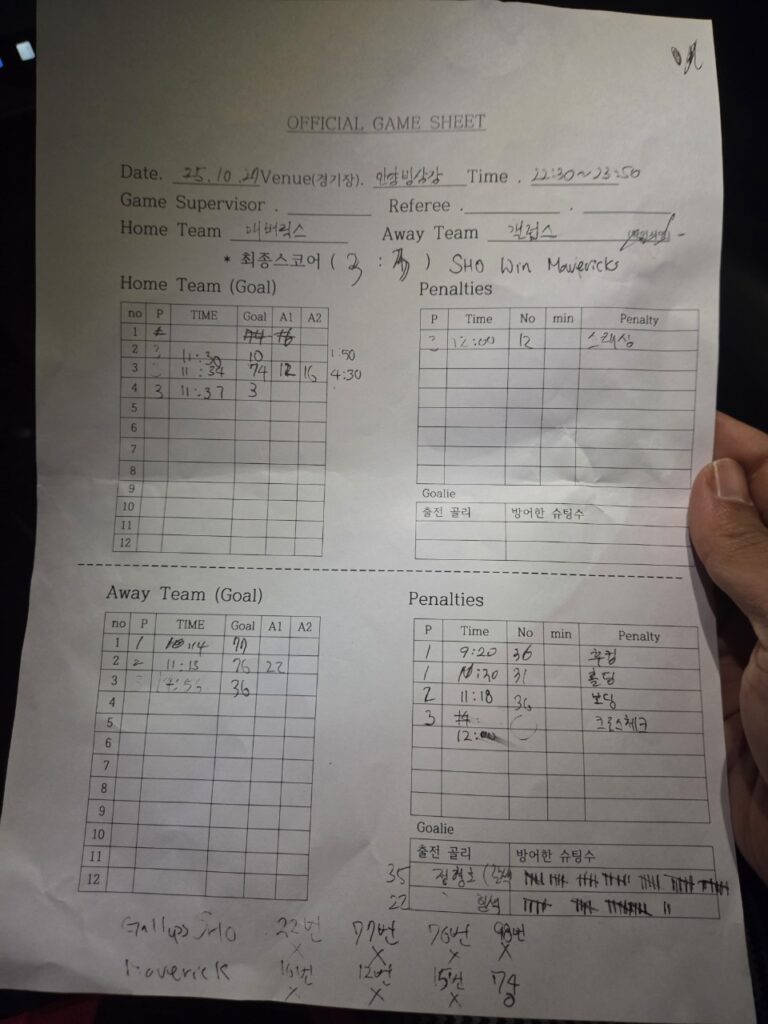 OFFICIAL GAME SHEET
Date. 25.10.27 Venue(경기장). 안양빙상장 Time. 22:30~23:50
Game Supervisor. Referee. .
Home Team 매버릭스 Away Team 갤럽스
* 최종스코어 ( 3 : ) SHO Win Mavericks
Home Team (Goal)
no P TIME Goal A1 A2
1 2 74 16
2 11:30 10 1:50
3 11:34 74 12 16 4:30
4 3 11:37 3
5
6
7
8
9
10
11
12
Penalties
P Time No min Penalty
3 12:00 12 스래싱
Goalie
출전 골리 방어한 슈팅수
Away Team (Goal)
no P TIME Goal A1 A2
1 1 :14 77
2 2 11:13 76 22
3 36
4
5
6
7
8
9
10
11
12
Penalties
P Time No min Penalty
1 9:20 36 후킹
1 :20 31 홀딩
2 11:18 36 보딩
3 12:00 크로스체크
Goalie
출전 골리 방어한 슈팅수
35
22
Gallups SHO 22번 77번 76번 98번
X X X X
Maverick 10번 12번 15번 74
X X X O